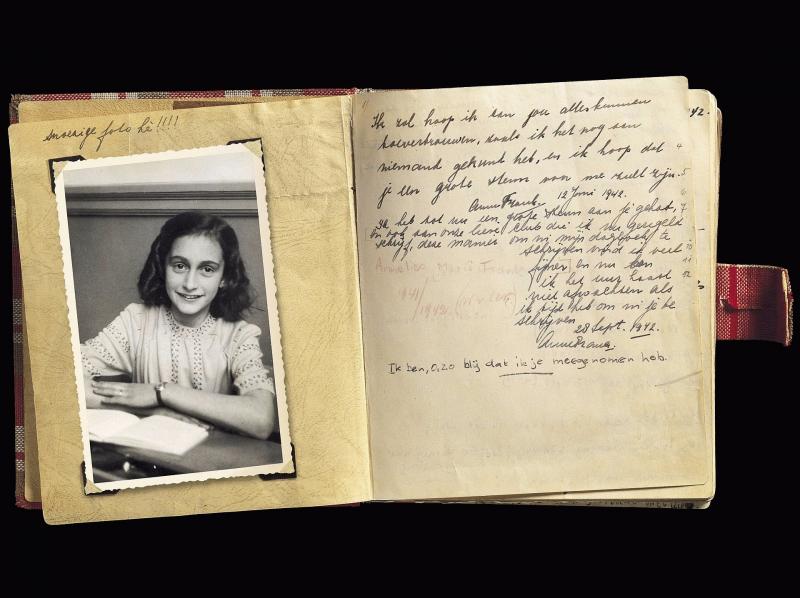 snoezige foto hè!!!!
Ik zal hoop ik aan jou alles kunnen
toevertrouwen, zoals ik het nog aan
niemand gekunt heb, en ik hoop dat
je een grote steun voor me zult zijn.
Anne Frank. 12 Juni 1942.
Ik heb tot nu een grote steun aan je gehad,
en ook aan onze lieve club die ik nu geregeld
schrijf, deze manier om in mijn dagboek te
schrijven vind ik veel
fijner en nu kan
ik het uur haast
niet afwachten als
ik tijd heb om in je te
schrijven
28 Sept. 1942.
Anne Frank.
Ik ben, O, zo blij dat ik je meegenomen heb.
Annelies Marie Frank
1941
1942
42.
4
5
6
7
10